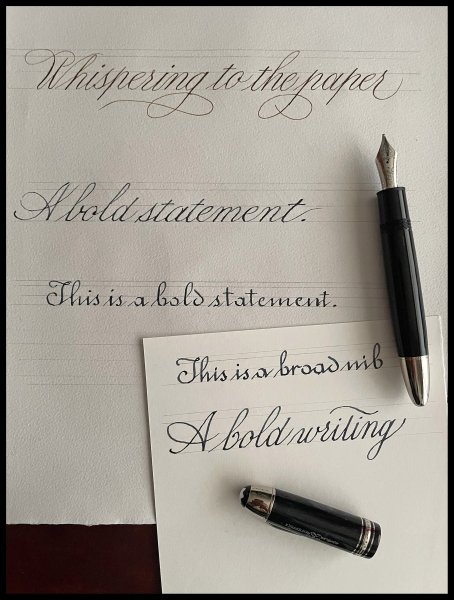 Whispering to the paper
A bold statement.
This is a bold statement.
This is a broad nib
A bold writing